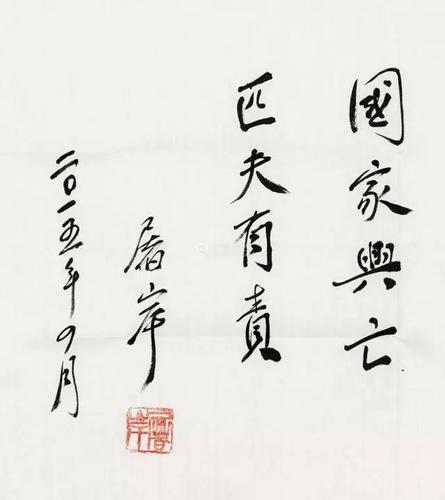 國家興亡
匹夫有責
屠岸
二〇一五年四月
屠岸